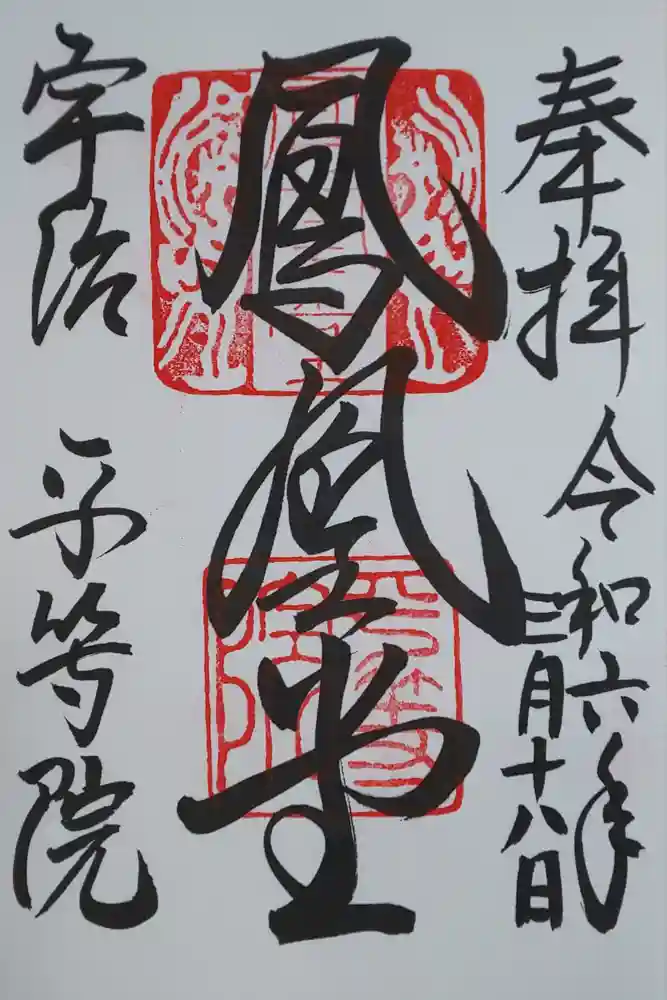 奉拝 令和六年
三月十八日
鳳凰堂
宇治 平等院
平等院